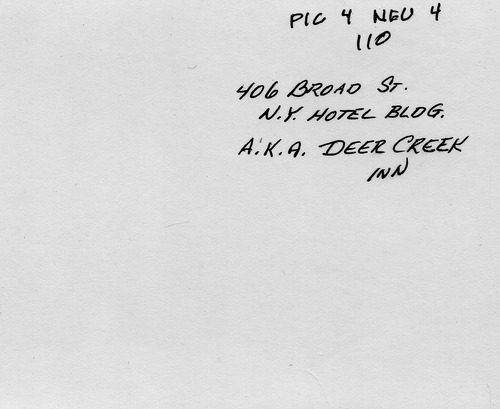 PIC 4 NEU 4
110
406 BROAD ST.
N.Y. HOTEL BLDG.
A.K.A. DEER CREEK
INN